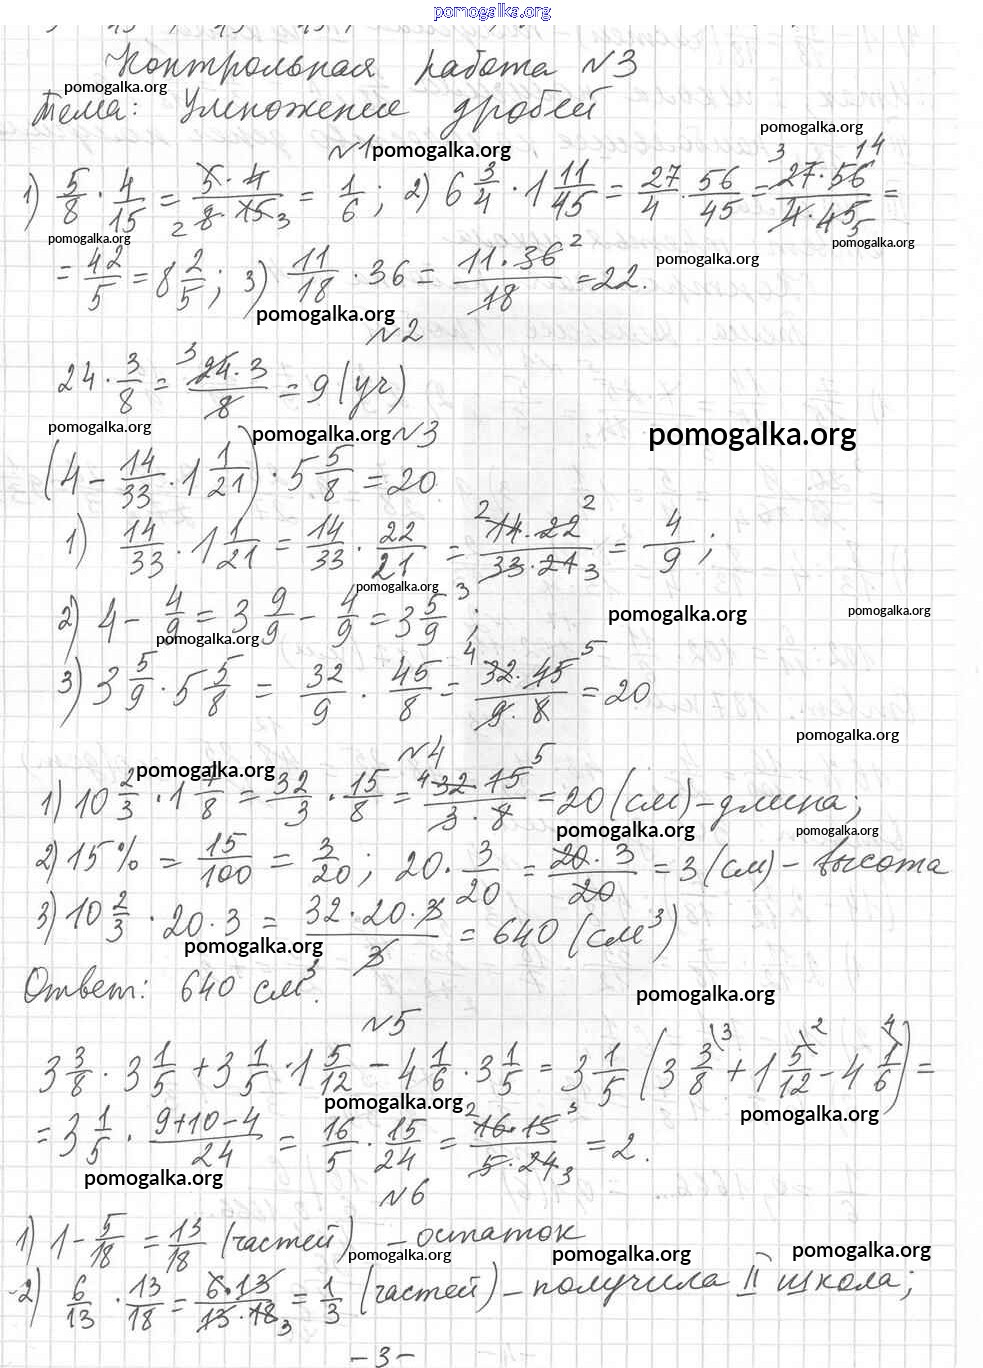 pomogalka.org
Контрольная работа №3
pomogalka.org
Тема: Умножение дробей
pomogalka.org
№1 pomogalka.org
1) 5/8 · 4/15 = 5·4/8·15 = 1/6; 2) 6 3/4 · 1 11/45 = 27/4 · 56/45 = 27·56/4·45 =
pomogalka.org pomogalka.org
= 42/5 = 8 2/5; 3) 11/18 · 36 = 11·36/18 = 22.
pomogalka.org
pomogalka.org
№2
24 · 3/8 = 24·3/8 = 9 (уч)
pomogalka.org pomogalka.org №3 pomogalka.org
(4 - 14/33 · 1 1/21) · 5 5/8 = 20
1) 14/33 · 1 1/21 = 14/33 · 22/21 = 14·22/33·21 = 4/9;
pomogalka.org
2) 4 - 4/9 = 3 9/9 - 4/9 = 3 5/9;
pomogalka.org pomogalka.org pomogalka.org
3) 3 5/9 · 5 5/8 = 32/9 · 45/8 = 32·45/9·8 = 20
pomogalka.org
№4
pomogalka.org
1) 10 2/3 · 1 7/8 = 32/3 · 15/8 = 32·15/3·8 = 20 (см) - длина;
pomogalka.org pomogalka.org
2) 15% = 15/100 = 3/20; 20 · 3/20 = 20·3/20 = 3 (см) - высота
3) 10 2/3 · 20 · 3 = 32·20·3/3 = 640 (см³)
pomogalka.org
Ответ: 640 см³.
pomogalka.org
№5
3 3/8 · 3 1/5 + 3 1/5 · 1 5/12 - 4 1/6 · 3 1/5 = 3 1/5 (3 3/8 + 1 5/12 - 4 1/6) =
pomogalka.org pomogalka.org
= 3 1/5 · 9+10-4/24 = 16/5 · 15/24 = 16·15/5·24 = 2.
pomogalka.org
№6
1) 1 - 5/18 = 13/18 (частей) - остаток
pomogalka.org pomogalka.org pomogalka.org
2) 6/13 · 13/18 = 6·13/13·18 = 1/3 (частей) - получила II школа;
- 3 -